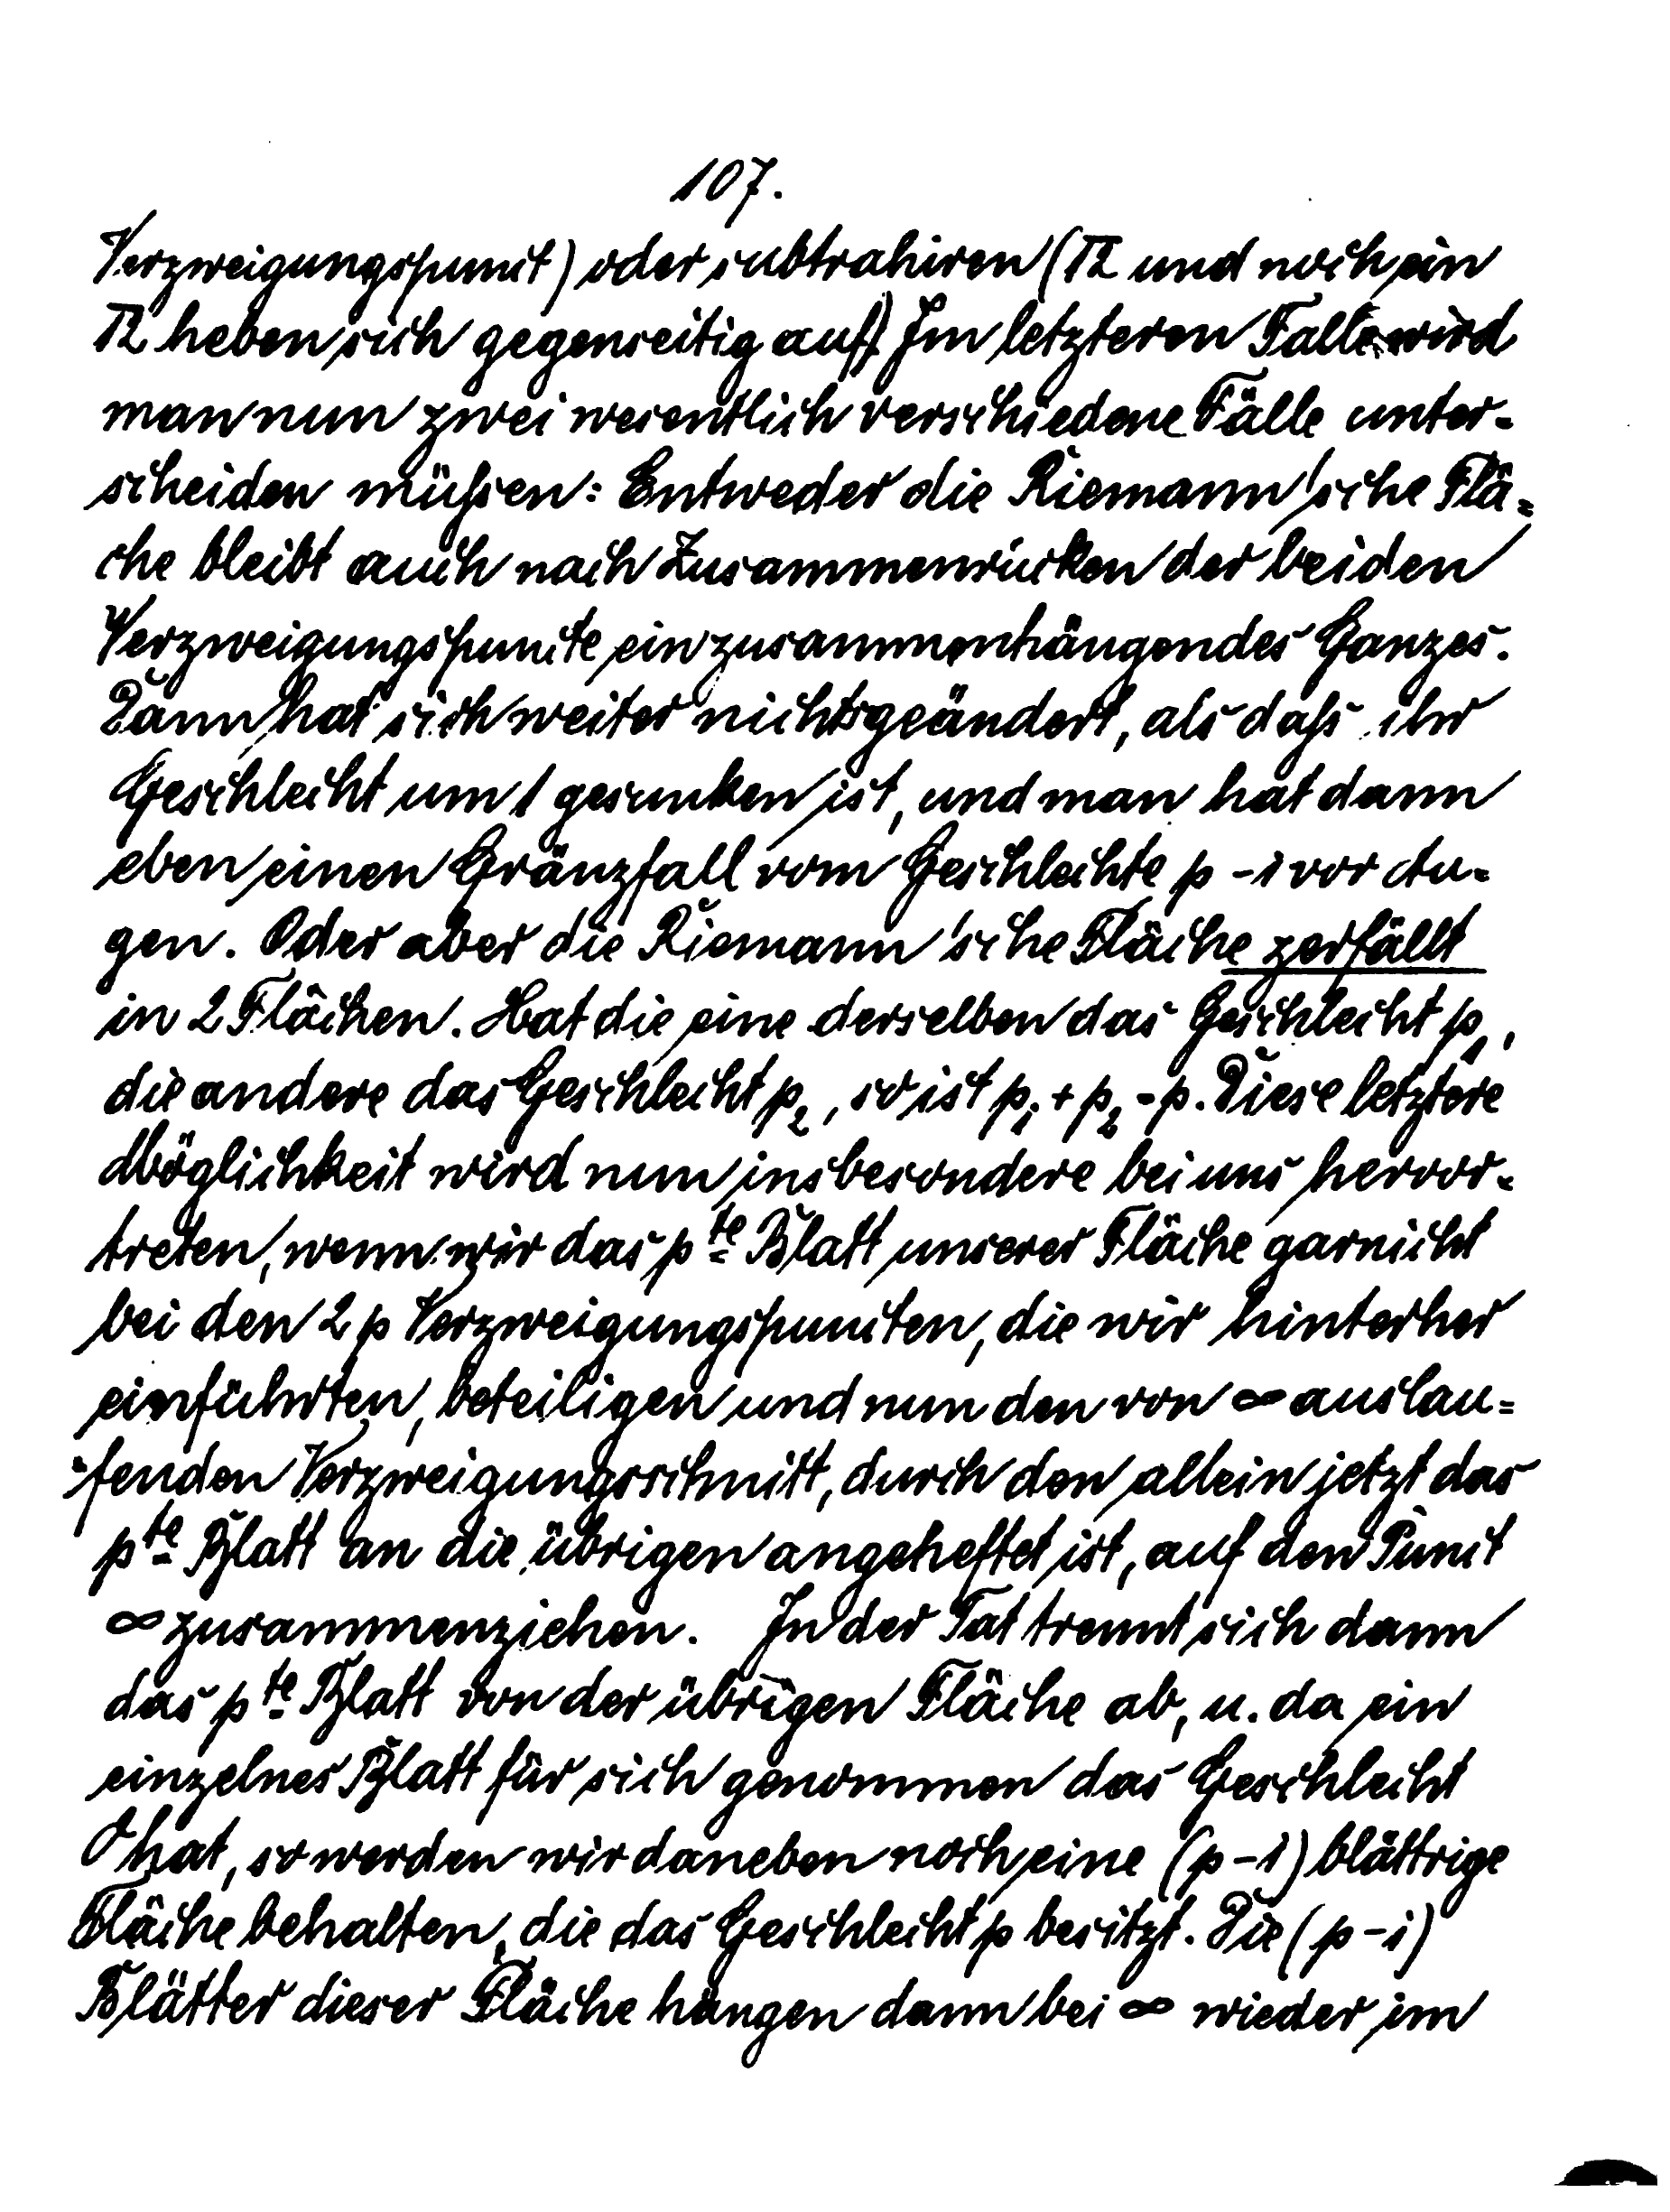 107.
Verzweigungspunct) oder subtrahiren (12 und noch ein
12 heben sich gegenseitig auf). Im letzteren Falle wird
man nun zwei wesentlich verschiedene Fälle unter-
scheiden müßen: Entweder die Riemann'sche Flä=
che bleibt auch nach Zusammenrücken der beiden
Verzweigungspuncte ein zusammenhängendes Ganzes.
Dann hat sich weiter nichts geändert, als daß ihr
Geschlecht um 1 gesunken ist, und man hat dann
eben einen Gränzfall vom Geschlechte p-1 vor Au-
gen. Oder aber die Riemann'sche Fläche zerfällt
in 2 Flächen. Hat die eine derselben das Geschlecht p₁,
die andere das Geschlecht p₂, so ist p₁ + p₂ = p. Diese letztere
Möglichkeit wird nun insbesondere bei uns hervor-
treten, wenn wir das pte Blatt unserer Fläche garnicht
bei den 2p Verzweigungspuncten, die wir hinterher
einführten, beteiligen und nun den von ∞ auslau=
fenden Verzweigungsschnitt, durch den allein jetzt das
pte Blatt an die übrigen angeheftet ist, auf den Punct
∞ zusammenziehen. In der Tat trennt sich dann
das pte Blatt von der übrigen Fläche ab, u. da ein
einzelnes Blatt für sich genommen das Geschlecht
0 hat, so werden wir daneben noch eine (p-1) blättrige
Fläche behalten, die das Geschlecht p besitzt. Die (p-1)
Blätter dieser Fläche hängen dann bei ∞ wieder im